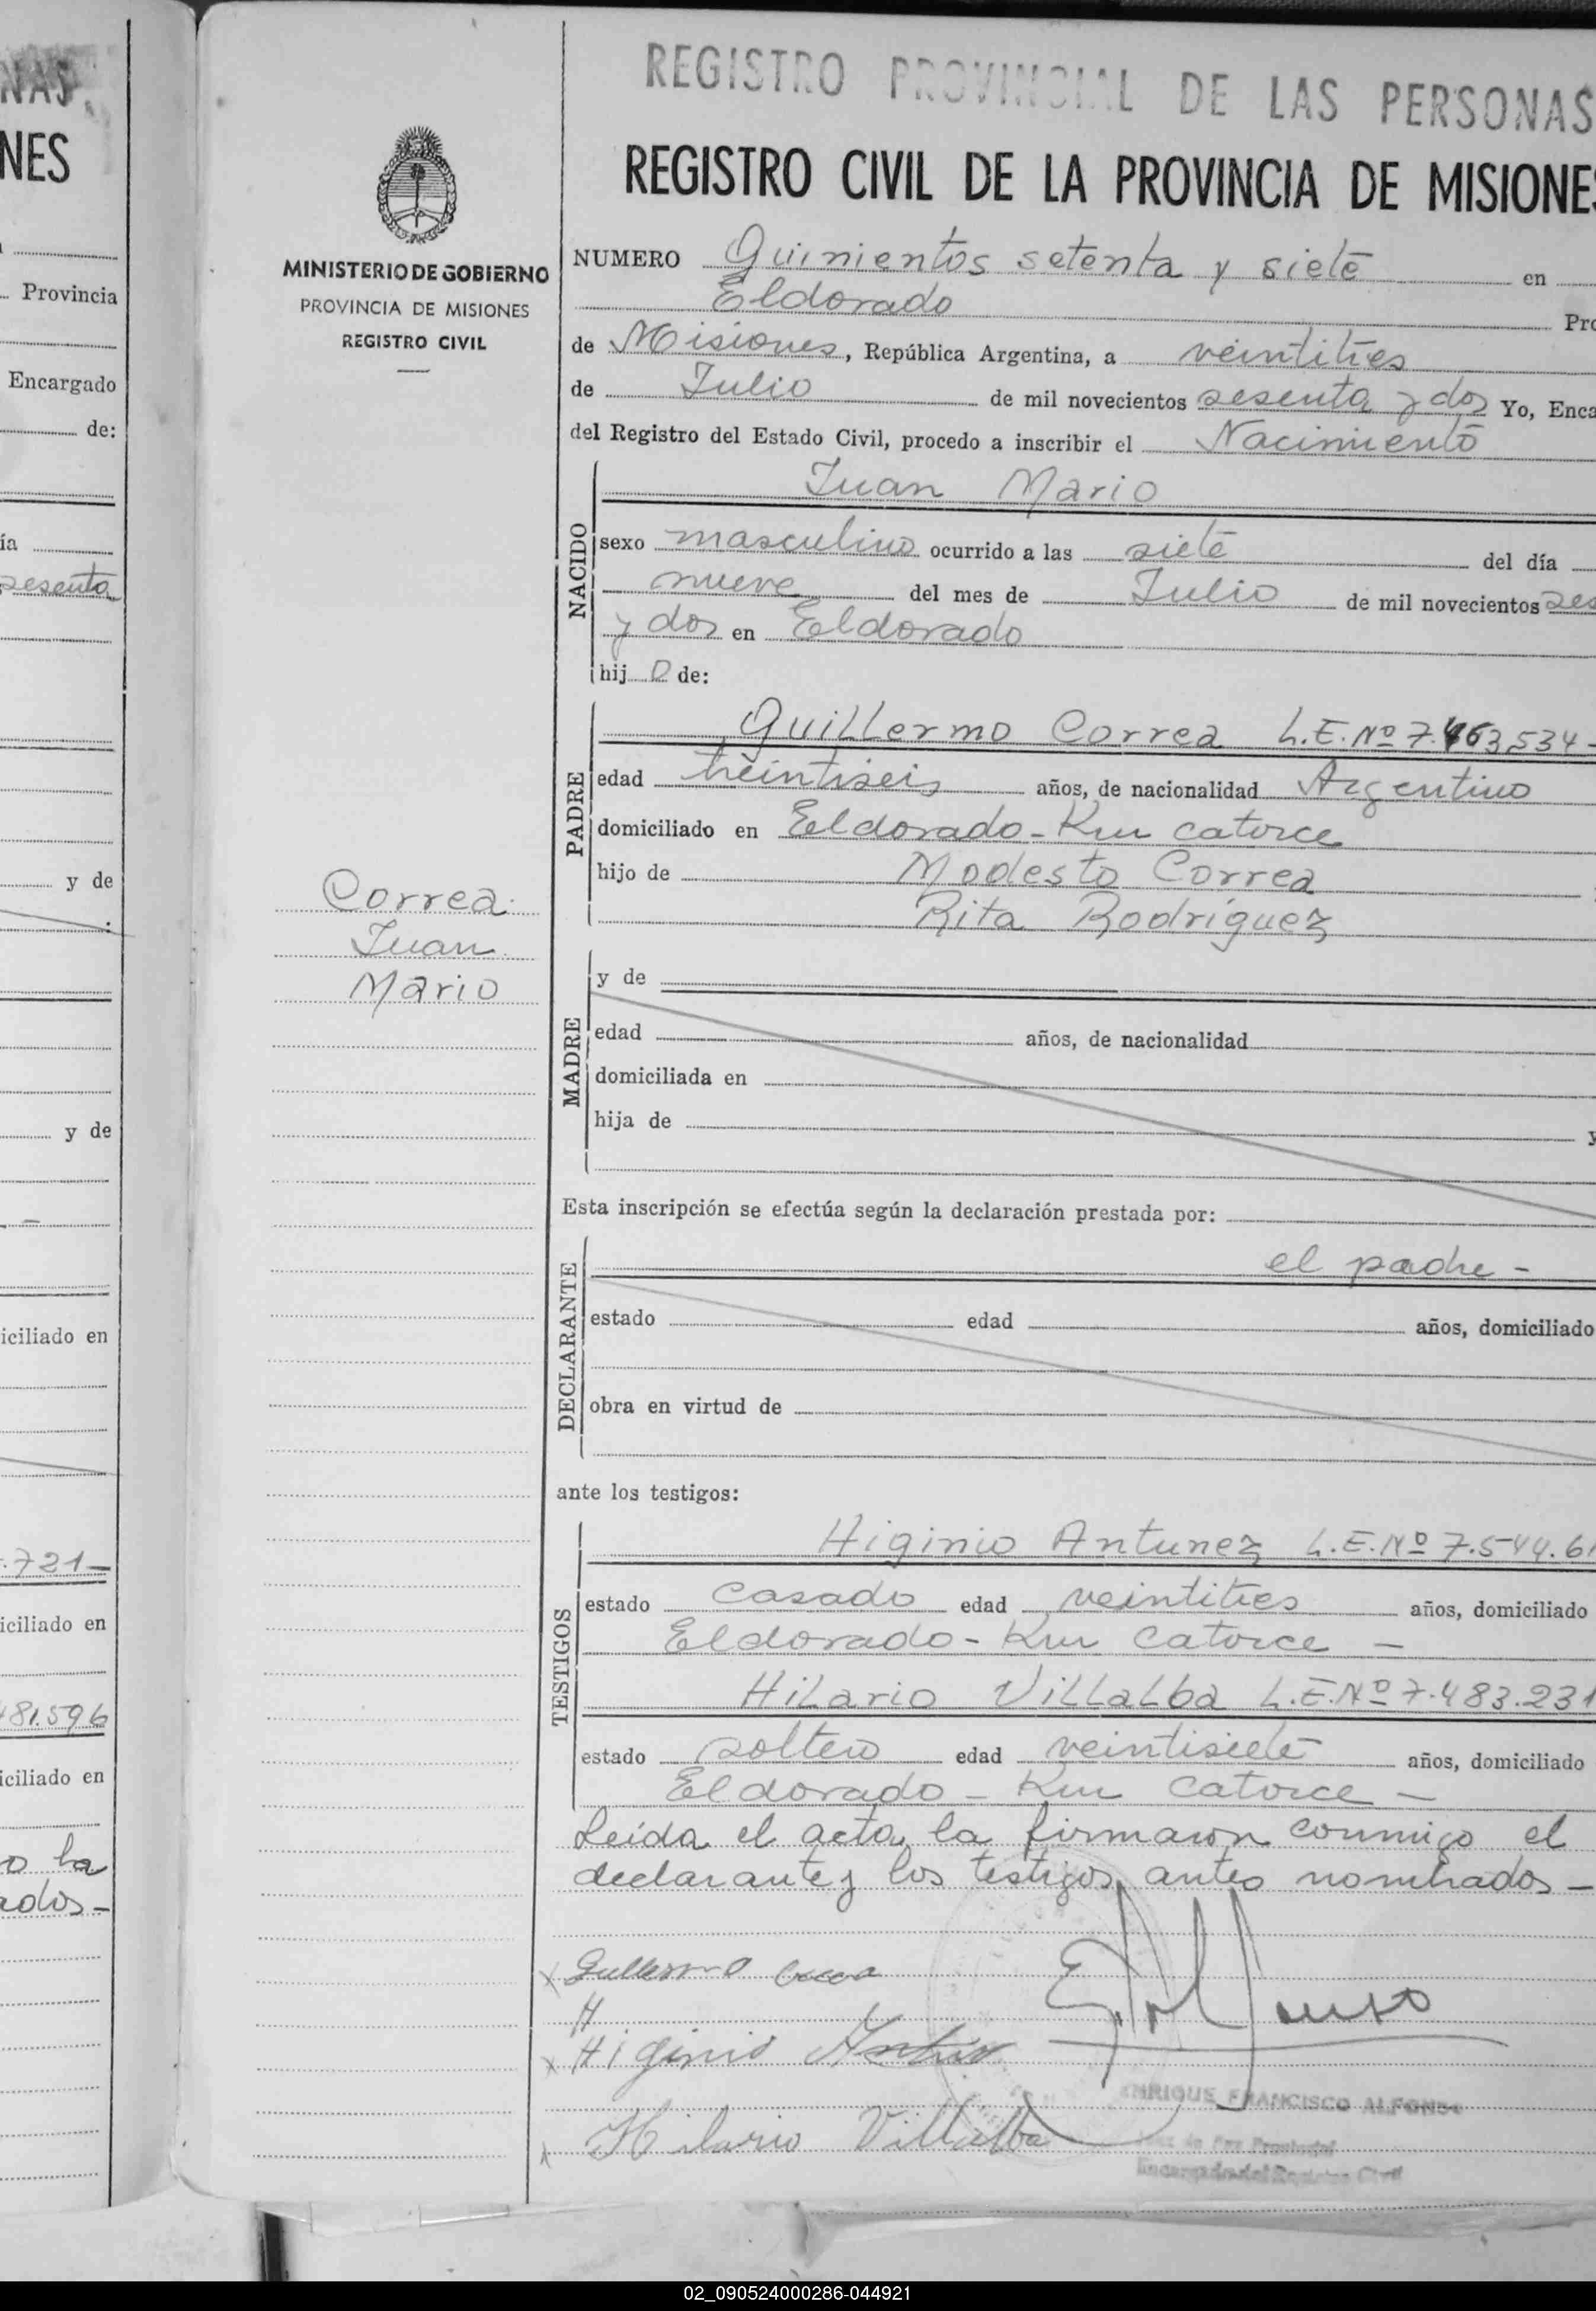 NAS.
NES
Provincia
Encargado
de:
ía
sesenta
y de
y de
iciliado en
.721-
iciliado en
481.596
iciliado en
o la
ados-
MINISTERIO DE GOBIERNO
PROVINCIA DE MISIONES
REGISTRO CIVIL
Correa
Juan
Mario
REGISTRO PROVINCIAL DE LAS PERSONAS
REGISTRO CIVIL DE LA PROVINCIA DE MISIONES
NUMERO Quinientos setenta y siete en
Eldorado Pro
de Misiones, República Argentina, a veintitres
de Julio de mil novecientos sesenta y dos Yo, Enca
del Registro del Estado Civil, procedo a inscribir el Nacimiento
NACIDO
Juan Mario
sexo masculino ocurrido a las siete del día
nueve del mes de Julio de mil novecientos ses
y dos en Eldorado
hij o de:
PADRE
Guillermo Correa L.E. Nº 7.463,534-
edad veintiseis años, de nacionalidad Argentino
domiciliado en Eldorado-Km catorce
hijo de Modesto Correa
Rita Rodríguez
MADRE
y de
edad años, de nacionalidad
domiciliada en
hija de y
Esta inscripción se efectúa según la declaración prestada por:
DECLARANTE
el padre -
estado edad años, domiciliado
obra en virtud de
ante los testigos:
TESTIGOS
Higinio Antunez L.E. Nº 7.544.61
estado casado edad veintitres años, domiciliado
Eldorado-Km catorce -
Hilario Villalba L.E. Nº 7.483.231
estado soltero edad veintisiete años, domiciliado
Eldorado - Km catorce -
Leída el acta, la firmaron conmigo el
declarante y los testigos antes nombrados -
x Guillermo Correa
H
x Higinio
x Hilario Villalba
ENRIQUE FRANCISCO ALFONSO
Juez de Paz Provincial
Encargado del Registro Civil
02_090524000286-044921